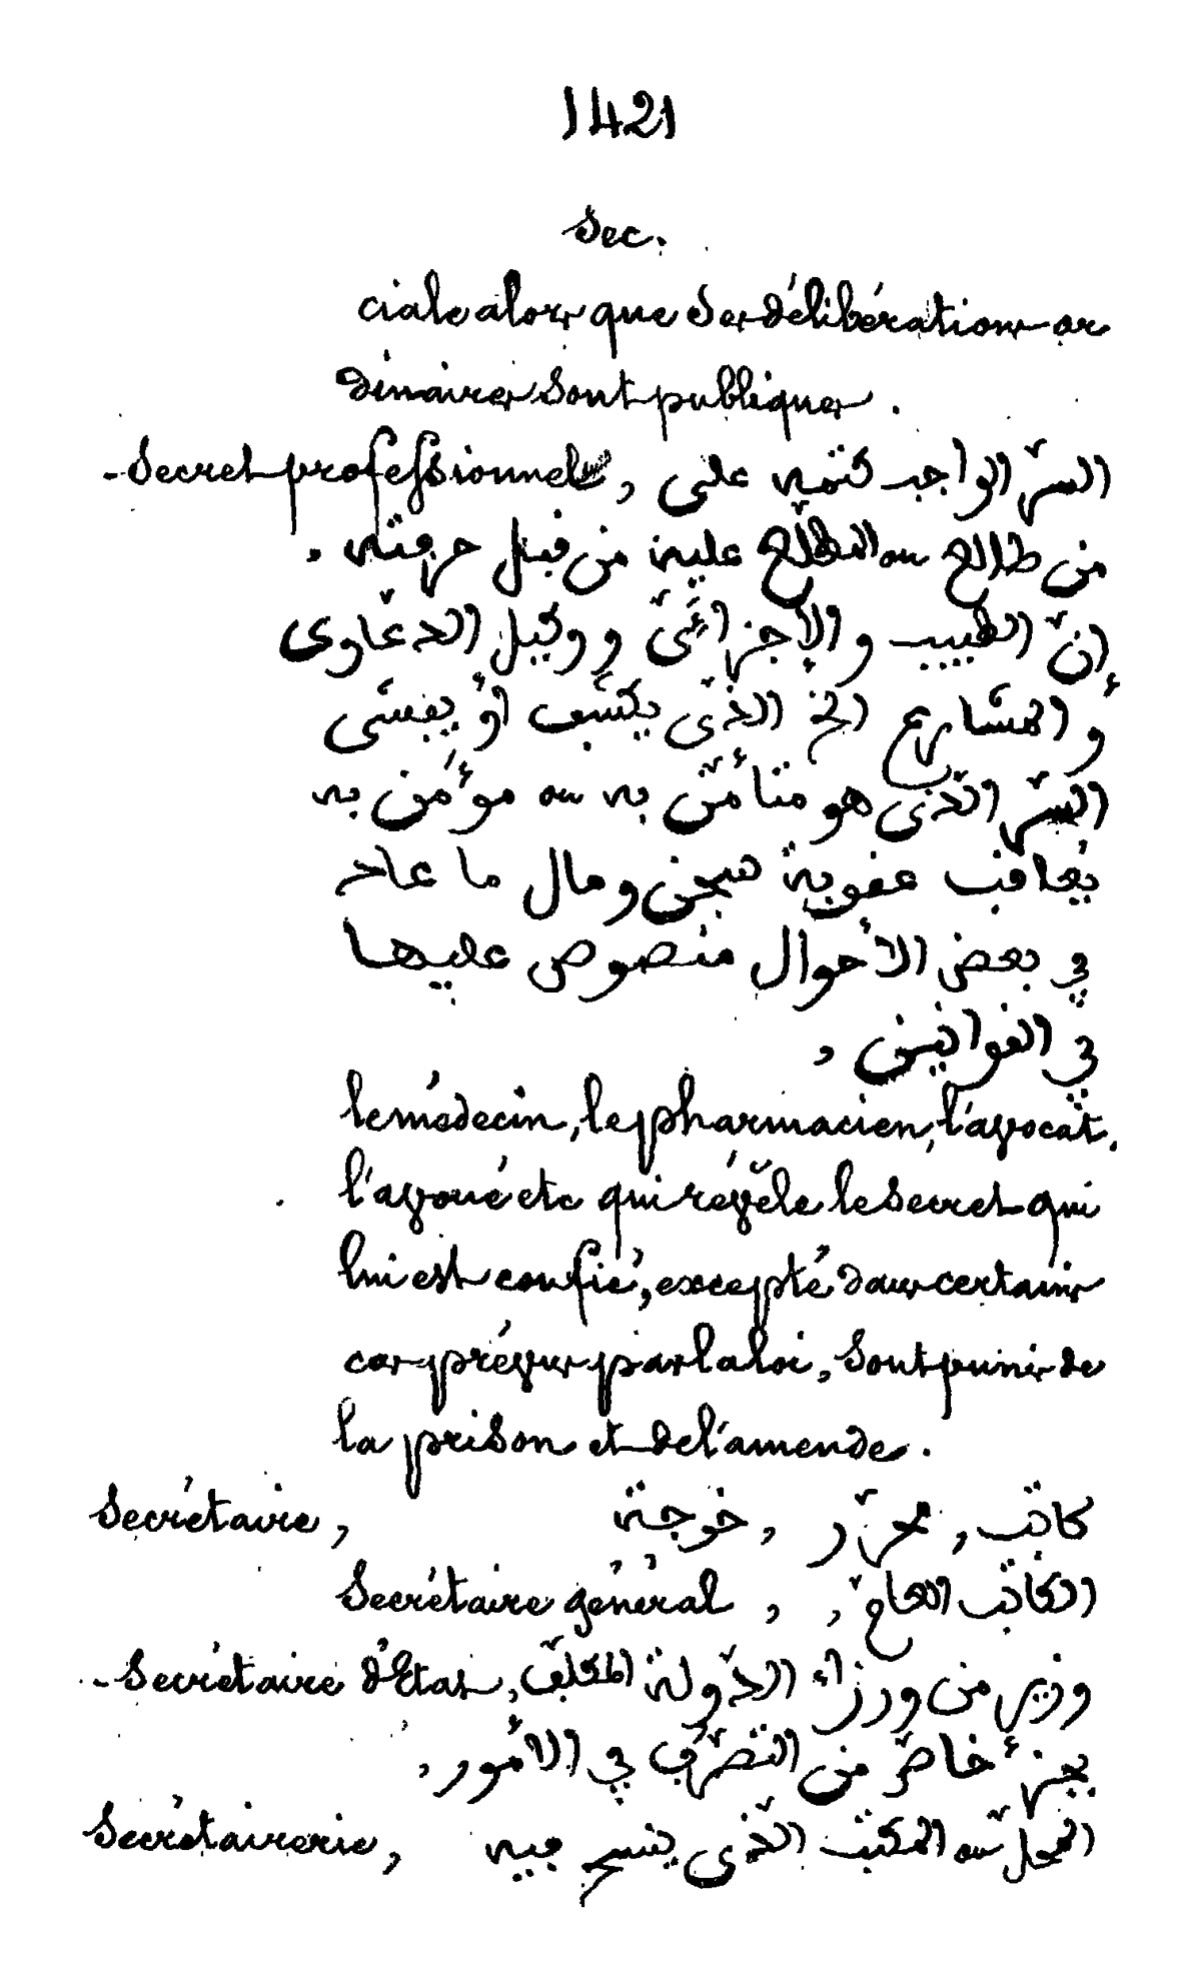 1421
Sec.
ciale alors que ses délibérations or
dinaires sont publiques.
- Secret professionnel, السرّ الواجب كتمه على
من طالع او المطّلع عليه من قبل حرفته.
إنّ الطبيب والإجزائيّ ووكيل الدعاوى
أو المشارع الخ الذّى يكشف أو يفشى
السرّ الّذى هو متأمّن به او مؤمَن به
يُعاقب عقوبة سجن ومال ما عاد
في بعض الأحوال منصوص عليها
في القوانين,
le médecin, le pharmacien, l'avocat,
l'avoué etc qui révèle le secret qui
lui est confié, excepté dans certains
cas prévus par la loi, sont punis de
la prison et de l'amende.
Secrétaire, كاتب, محرّر, خوجة
Secrétaire général, الكاتب العامّ,
- Secrétaire d'Etat, وزير من وزراء الدّولة المكلّف
بجزء خاصّ من التصرّف في الأمور,
Secrétairerie, المحلّ او المكتب الّذى ينسخ فيه